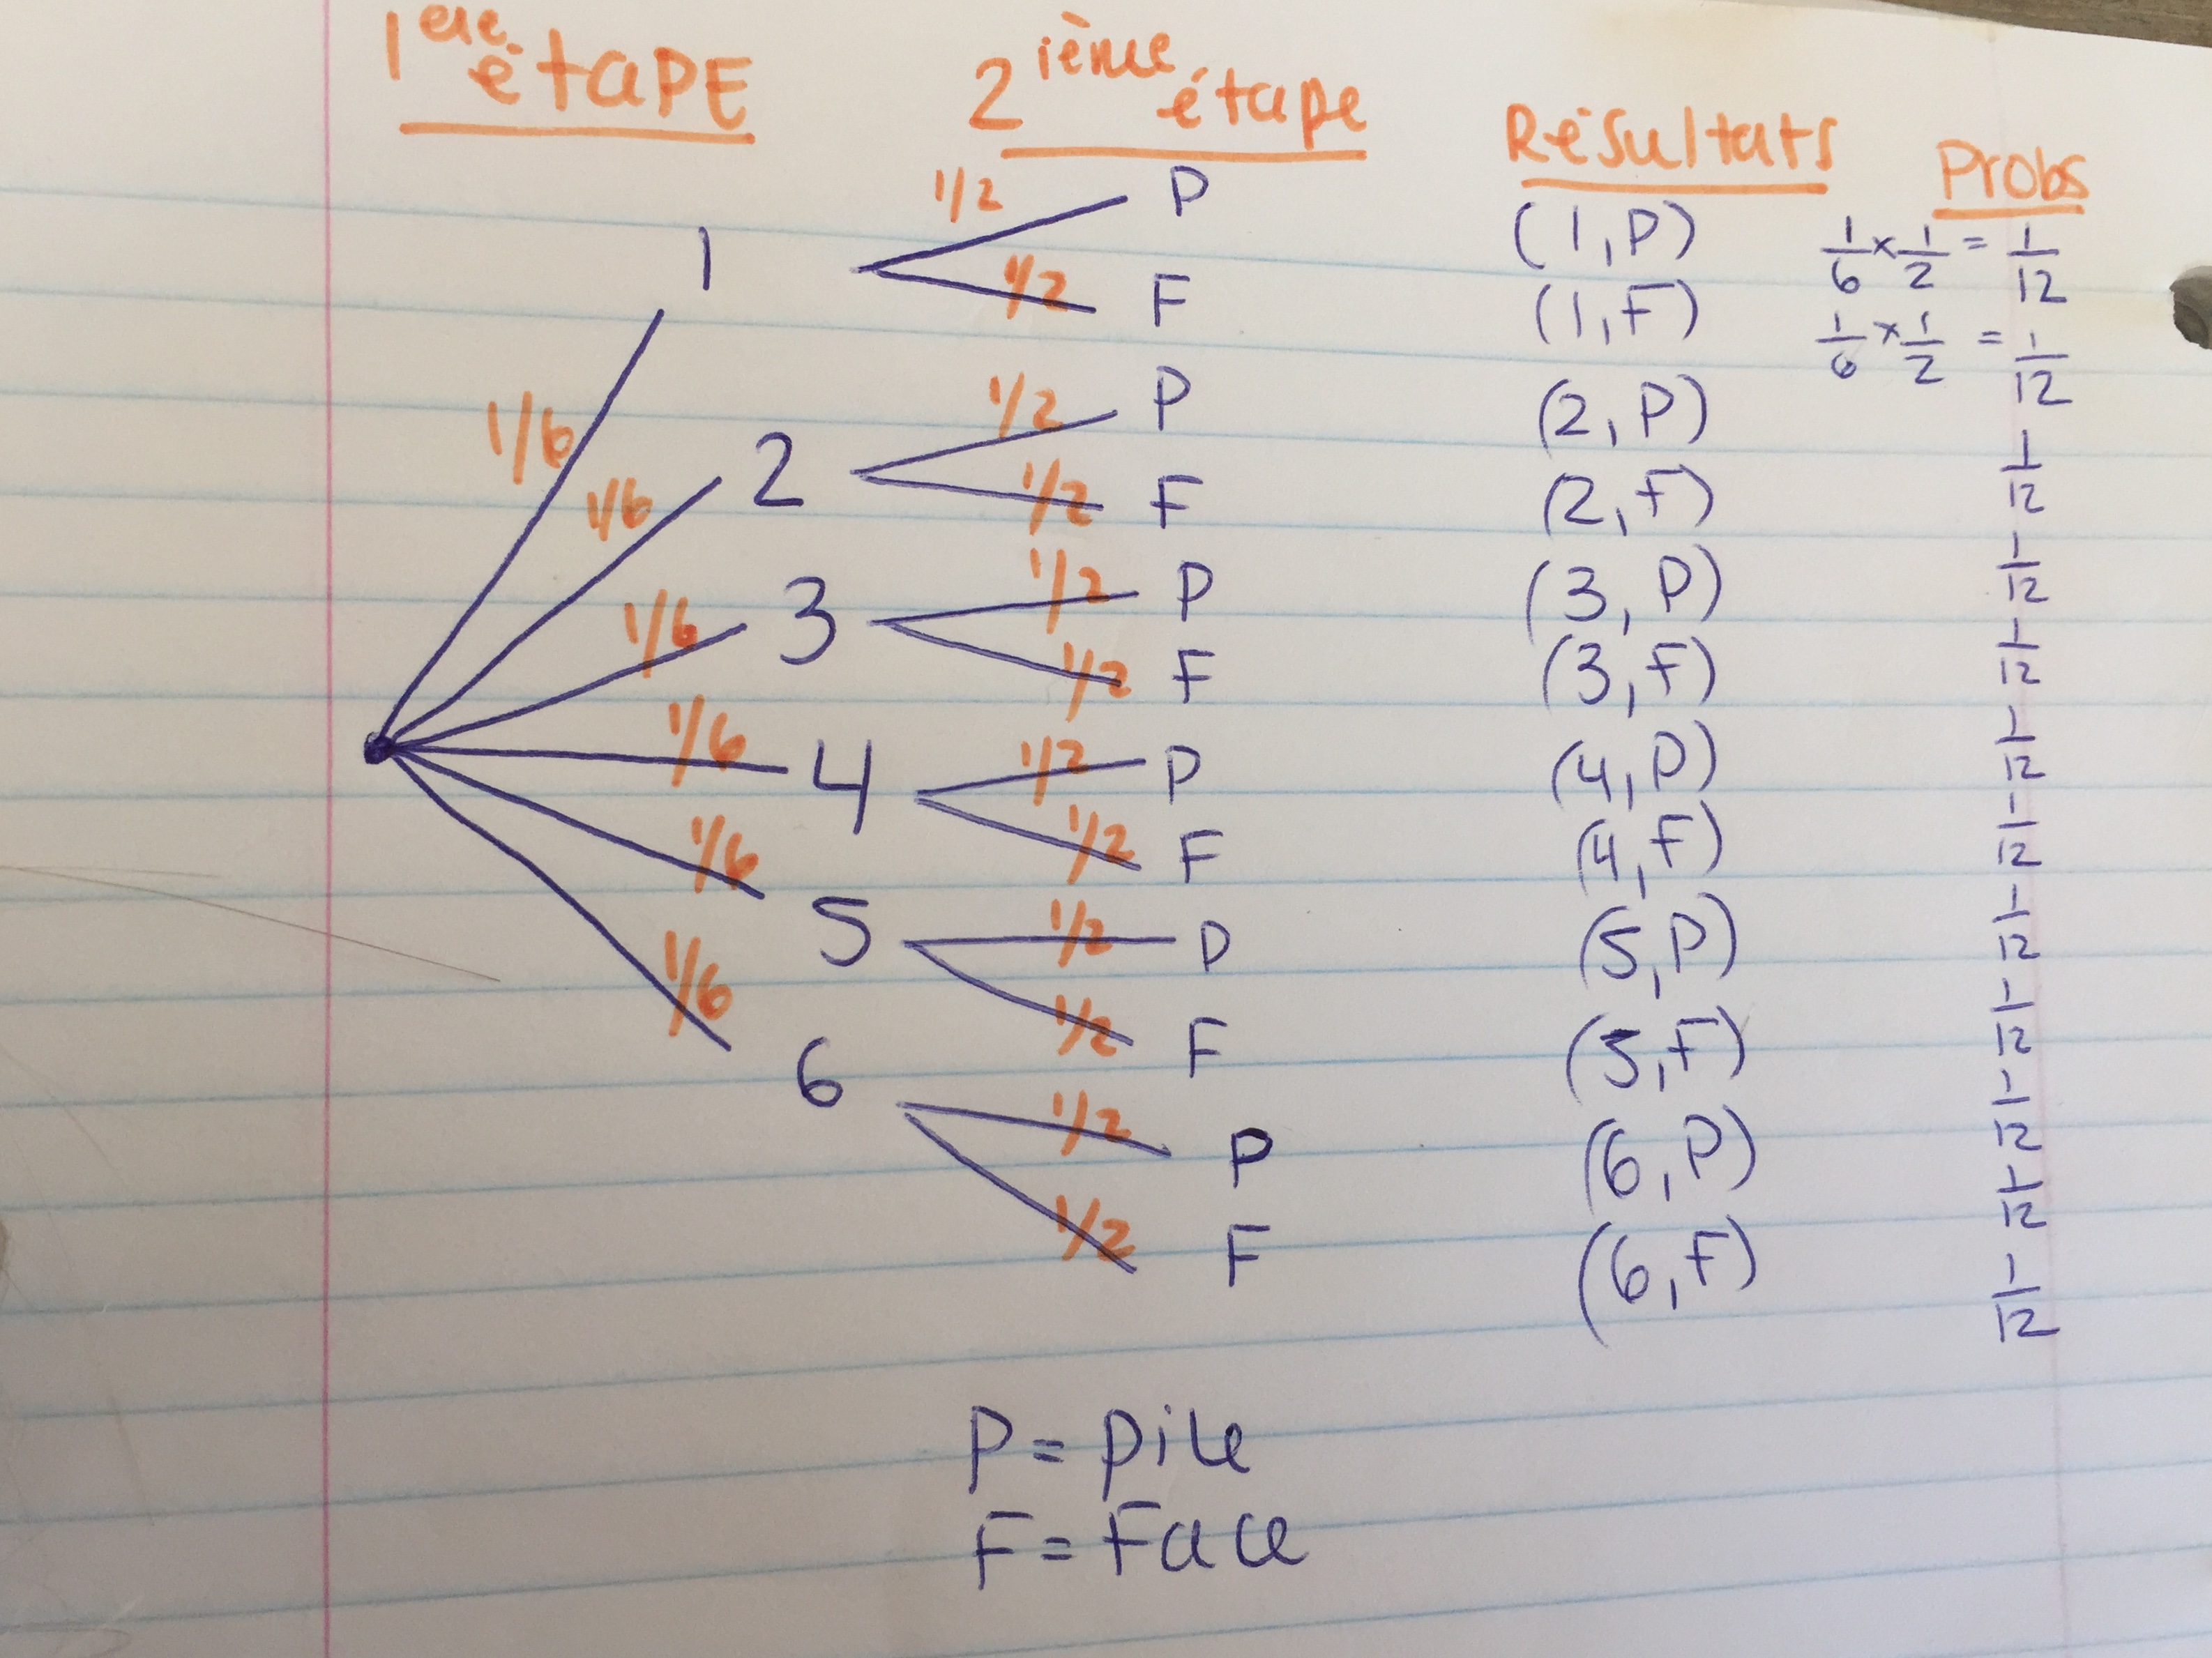 1ere étape 2ième étape Résultats Probs
1/6 1 1/2 P (1, P) 1/6 x 1/2 = 1/12
1/2 F (1, F) 1/6 x 1/2 = 1/12
1/6 2 1/2 P (2, P) 1/12
1/2 F (2, F) 1/12
1/6 3 1/2 P (3, P) 1/12
1/2 F (3, F) 1/12
1/6 4 1/2 P (4, P) 1/12
1/2 F (4, F) 1/12
1/6 5 1/2 P (5, P) 1/12
1/2 F (5, F) 1/12
1/6 6 1/2 P (6, P) 1/12
1/2 F (6, F) 1/12
P = pile
F = Face